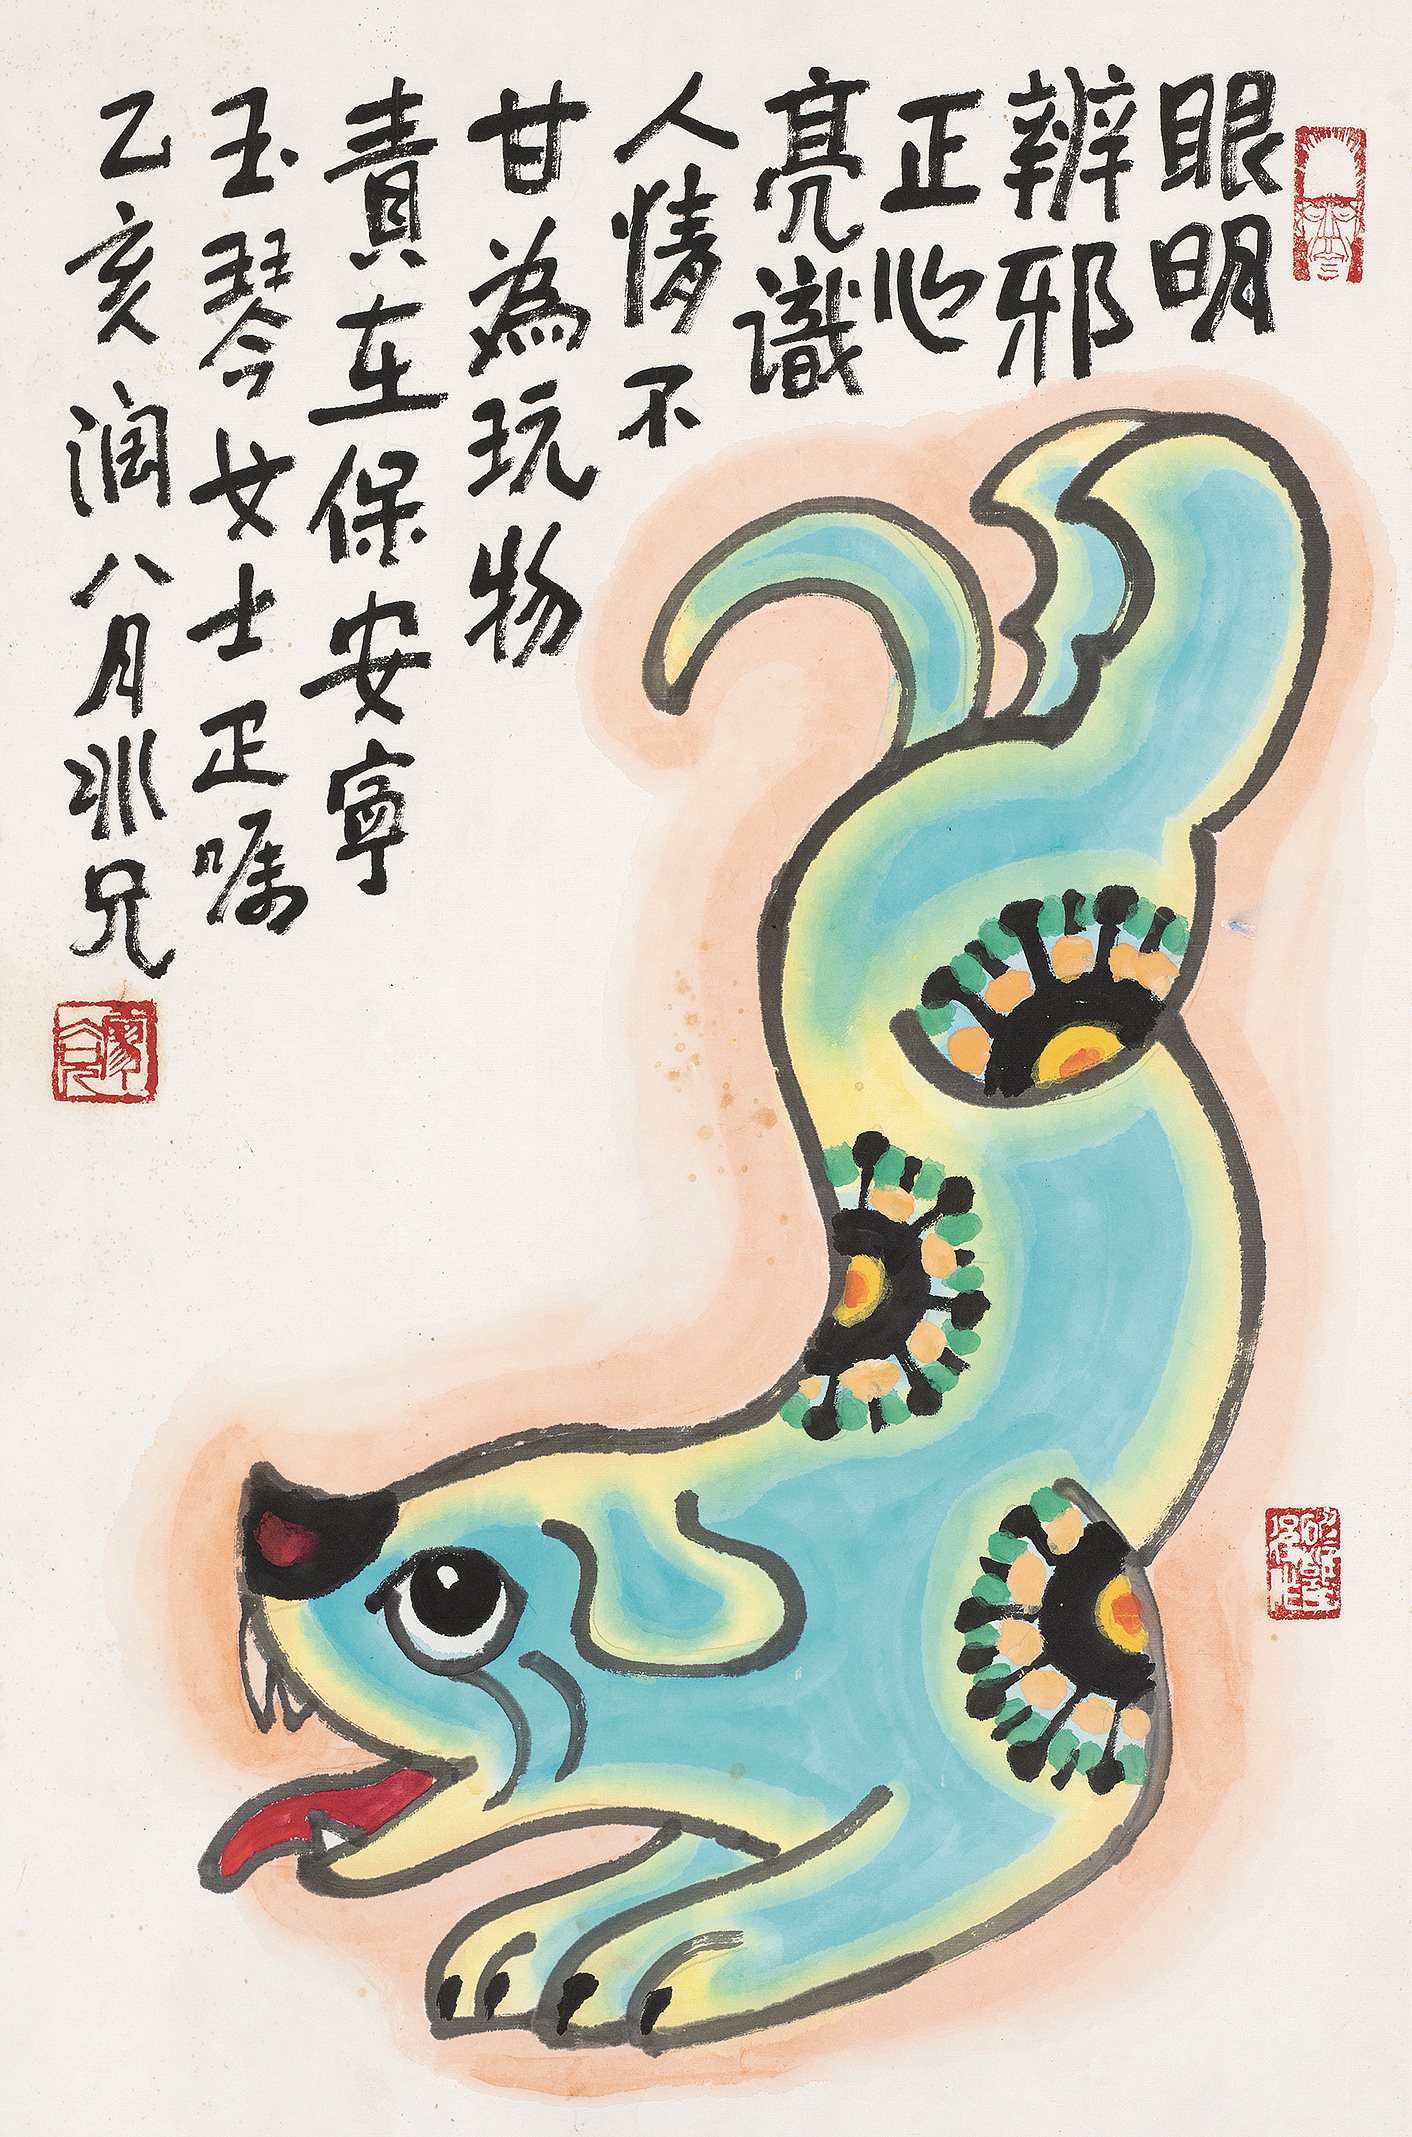 眼明
辨邪
正心
亮識
人情不
甘為玩物
責在保安寧
玉琴女士正嘱
乙亥润八月苗兄